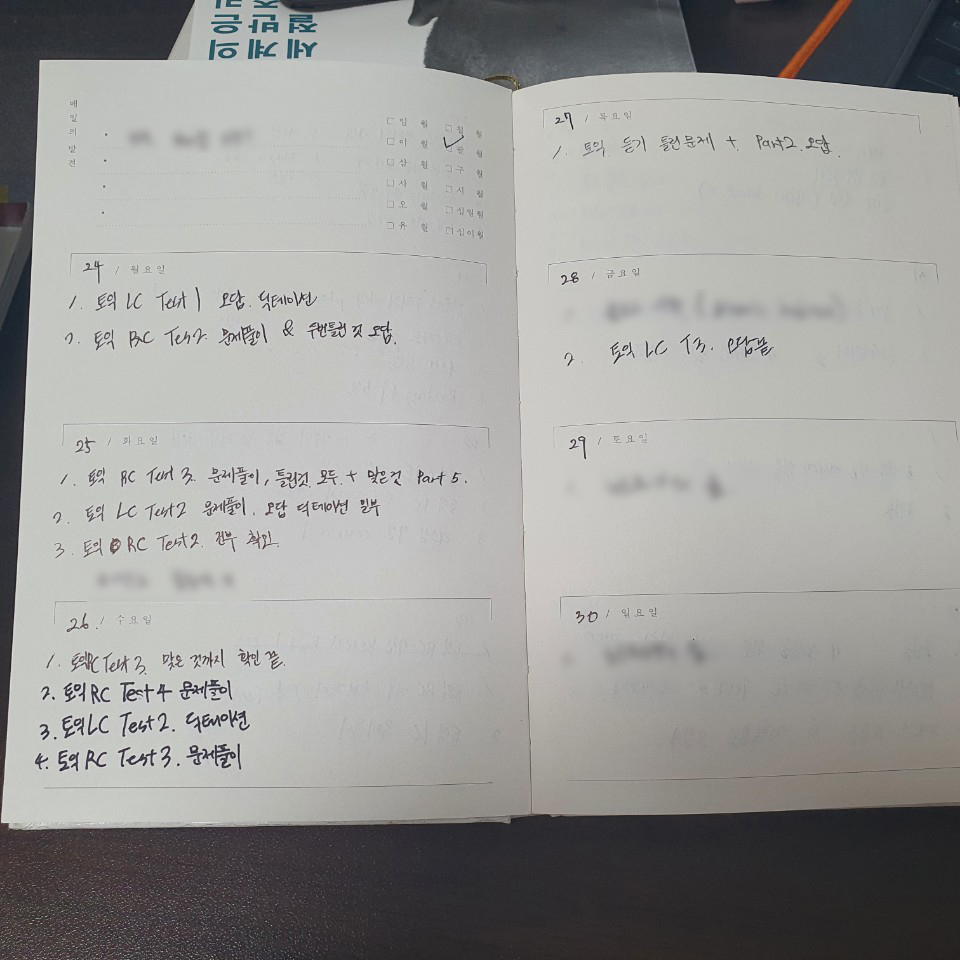 세계의
절반은
매일의 발견
□ 일 월 □ 칠 월
□ 이 월 □ 팔 월
□ 삼 월 □ 구 월
□ 사 월 □ 시 월
□ 오 월 □ 십일월
□ 유 월 □ 십이월
24 / 월요일
1. 토익 LC Test 1 오답. 딕테이션
2. 토익 RC Test2. 문제풀이 & 두번틀린 것 오답.
25 / 화요일
1. 토익 RC Test 3. 문제풀이, 틀린것 모두 + 맞은것 Part 5.
2. 토익 LC Test2 문제풀이. 오답 딕테이션 일부
3. 토익 RC Test2. 전부 확인.
26. / 수요일
1. 토익RC Test 3. 맞은 것까지 확인 끝.
2. 토익 RC Test 4 문제풀이
3. 토익 LC Test 2. 딕테이션
4. 토익 RC Test 3. 문제풀이
27 / 목요일
1. 토익 듣기 틀린문제 + Part2. 오답.
28 / 금요일
2. 토익 LC T3. 오답끝
29 / 토요일
30 / 일요일